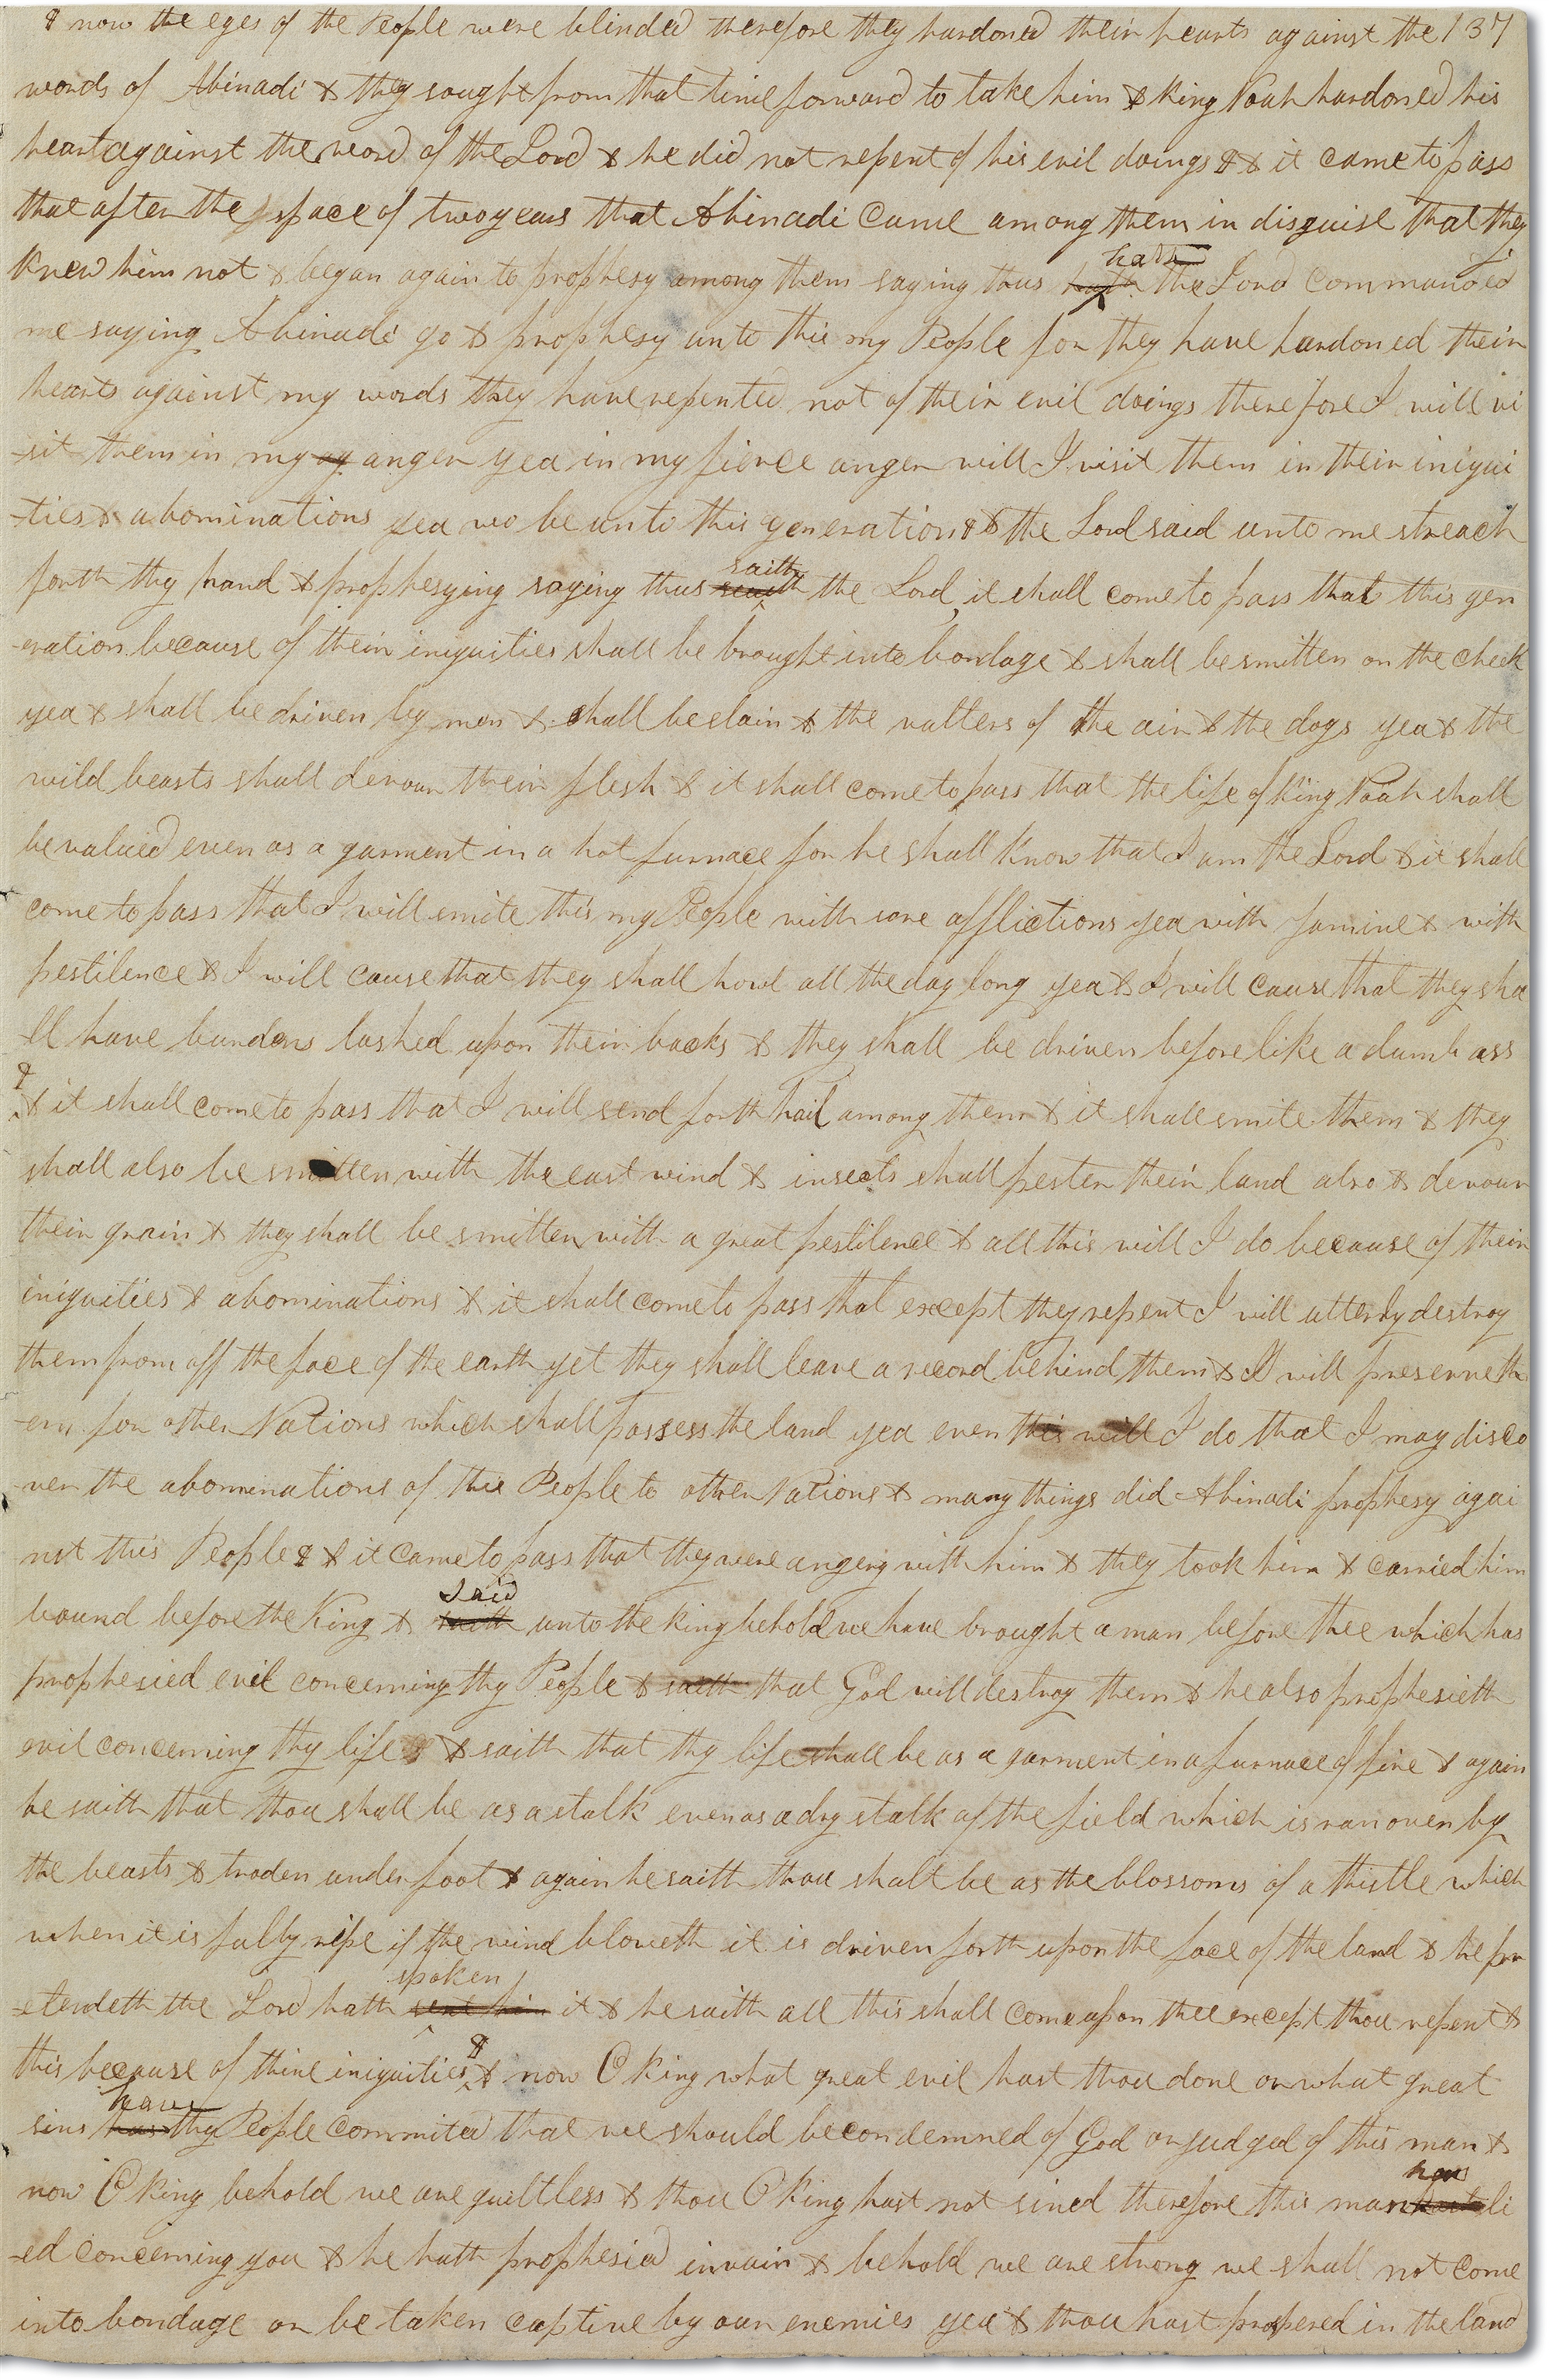 & now the eyes of the People were blinded therefore they hardoned their hearts against the 137
words of Abinadi & they sought from that time forward to take him & King Noah hardoned his
heart against the word of the Lord & he did not repent of his evil doings & & it came to pass
that after the space of two years that Abinadi came among them in disguise that they
knew him not & began again to prophesy among them saying thus hath the Lord commanded
me saying Abinadi go & prophesy unto this my People for they have hardoned their
hearts against my words they have repented not of their evil doings therefore I will vi
-sit them in my anger yea in my fierce anger will I visit them in their iniqui
-ties & abominations yea wo be unto this generation & & the Lord said unto me streach
forth thy hand & prophesying saying thus saith the Lord, it shall come to pass that this gen
-eration because of their iniquities shall be brought into bondage & shall be smitten on the cheek
yea & shall be driven by men & shall be slain & the vulters of the air & the dogs yea & the
wild beasts shall devour their flesh & it shall come to pass that the life of King Noah shall
be valued even as a garment in a hot furnace for he shall know that I am the Lord & it shall
come to pass that I will smite this my People with sore afflictions yea with famine & with
pestilence & I will cause that they shall howl all the day long yea & I will cause that they sha
-ll have burdens lashed upon their backs & they shall be driven before like a dumb ass
& & it shall come to pass that I will send forth hail among them & it shall smite them & they
shall also be smitten with the east wind & insects shall pester their land also & devour
their grain & they shall be smitten with a great pestilence & all this will I do because of their
iniquities & abominations & it shall come to pass that except they repent I will utterly destroy
them from off the face of the earth yet they shall leave a record behind them & I will preserve th
-em for other Nations which shall possess the land yea even this will I do that I may disco
ver the abominations of this People to other Nations & many things did Abinadi prophesy agai
nst this People & & it came to pass that they were angery with him & they took him & carried him
bound before the King & said unto the king behold we have brought a man before thee which has
prophesied evil concerning thy People & saith that God will destroy them & he also prophesieth
evil concerning thy life & & saith that thy life shall be as a garment in a furnace of fire & again
he saith that thou shall be as a stalk even as a dry stalk of the field which is ran over by
the beasts & troden under foot & again he saith thou shalt be as the blossoms of a thistle which
when it is fully ripe if the wind bloweth it is driven forth upon the face of the land & he pr
-etendeth the Lord hath spoken it & he saith all this shall come upon thee except thou repent &
this because of thine iniquities & & now O King what great evil hast thou done or what great
sins have thy People commited that we should be condemned of God or judged of this man &
now O King behold we are guiltless & thou O King hast not sined therefore this man has li
-ed concerning you & he hath prophesied in vain & behold we are strong we shall not come
into bondage or be taken captive by our enemies yea & thou hast prospered in the land